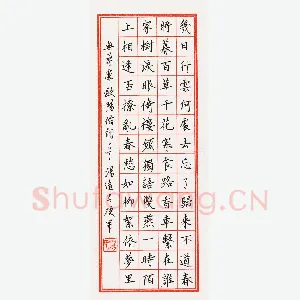 幾日行雲何處去忘了歸來不道春
將暮百草千花寒食路香車繫在誰
家樹淚眼倚樓頻獨語雙燕時陌
上相逢否撩亂春愁如柳絮依夢裏
無尋處 歐陽脩詞